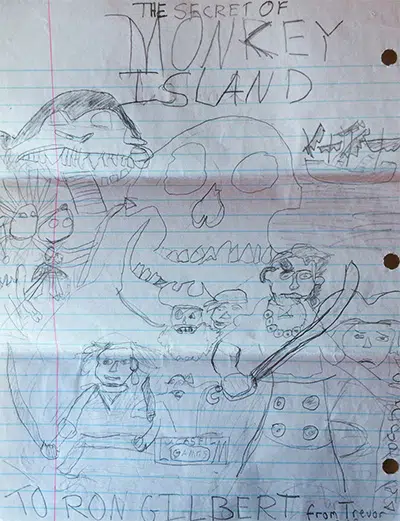 THE SECRET OF
MONKEY
ISLAND
GAMES
TO RON GILBERT from Trevor